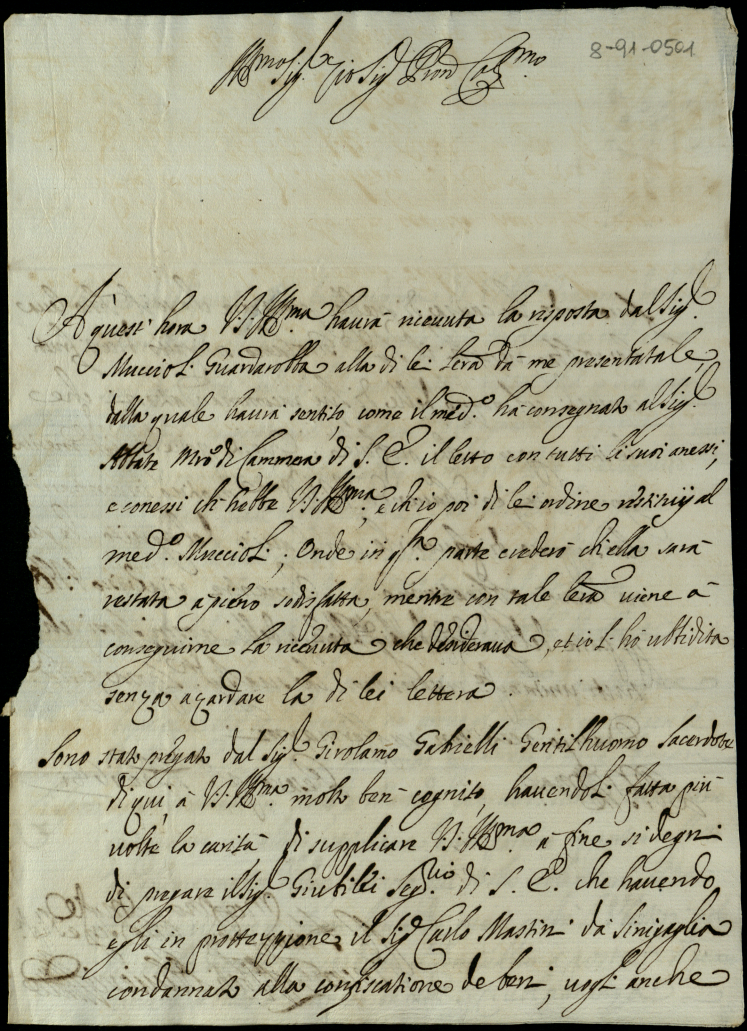 8-91-0501
Ill:mo Sig:r Zio Sig:r Pron Col:mo
A quest' hora V: Ill:ma haurà riceuuta la risposta dal Sig:r
Muccioli Guardarobba alla di lei lerã dà me presentatale,
dalla quale haurà sentito come il med:o hà consegnato al Sig:r
Abbate Mro di Cammera di S. E. il letto con tutti li suoi anessi,
e conessi ch'hebbe V: Ill:ma, e ch'io poi di lei ordine restituij al
med:o Muccioli; Onde in q:sta parte crederò ch'ella sarà
restata à pieno sodisfatta, mentre con tale lerã uiene à
conseguirne la riceuuta che desideraua, et io l'hò ubbidita
senza azardare la di lei lettera.
Sono stato pregato dal Sig:r Girolamo Gabrielli Gentilhuomo Sacerdote
di qui, à V: Ill:ma molto ben cognito, hauendoli fatta più
uolte la carità di supplicare V: Ill:ma à fine si degni
di pregare il Sig:r Giubilei Seg:rio di S. E. che hauendo
egli in prottezzione il Sig:r Carlo Mastini da Sinigaglia
condannato alla confiscatione de beni, uogli anche